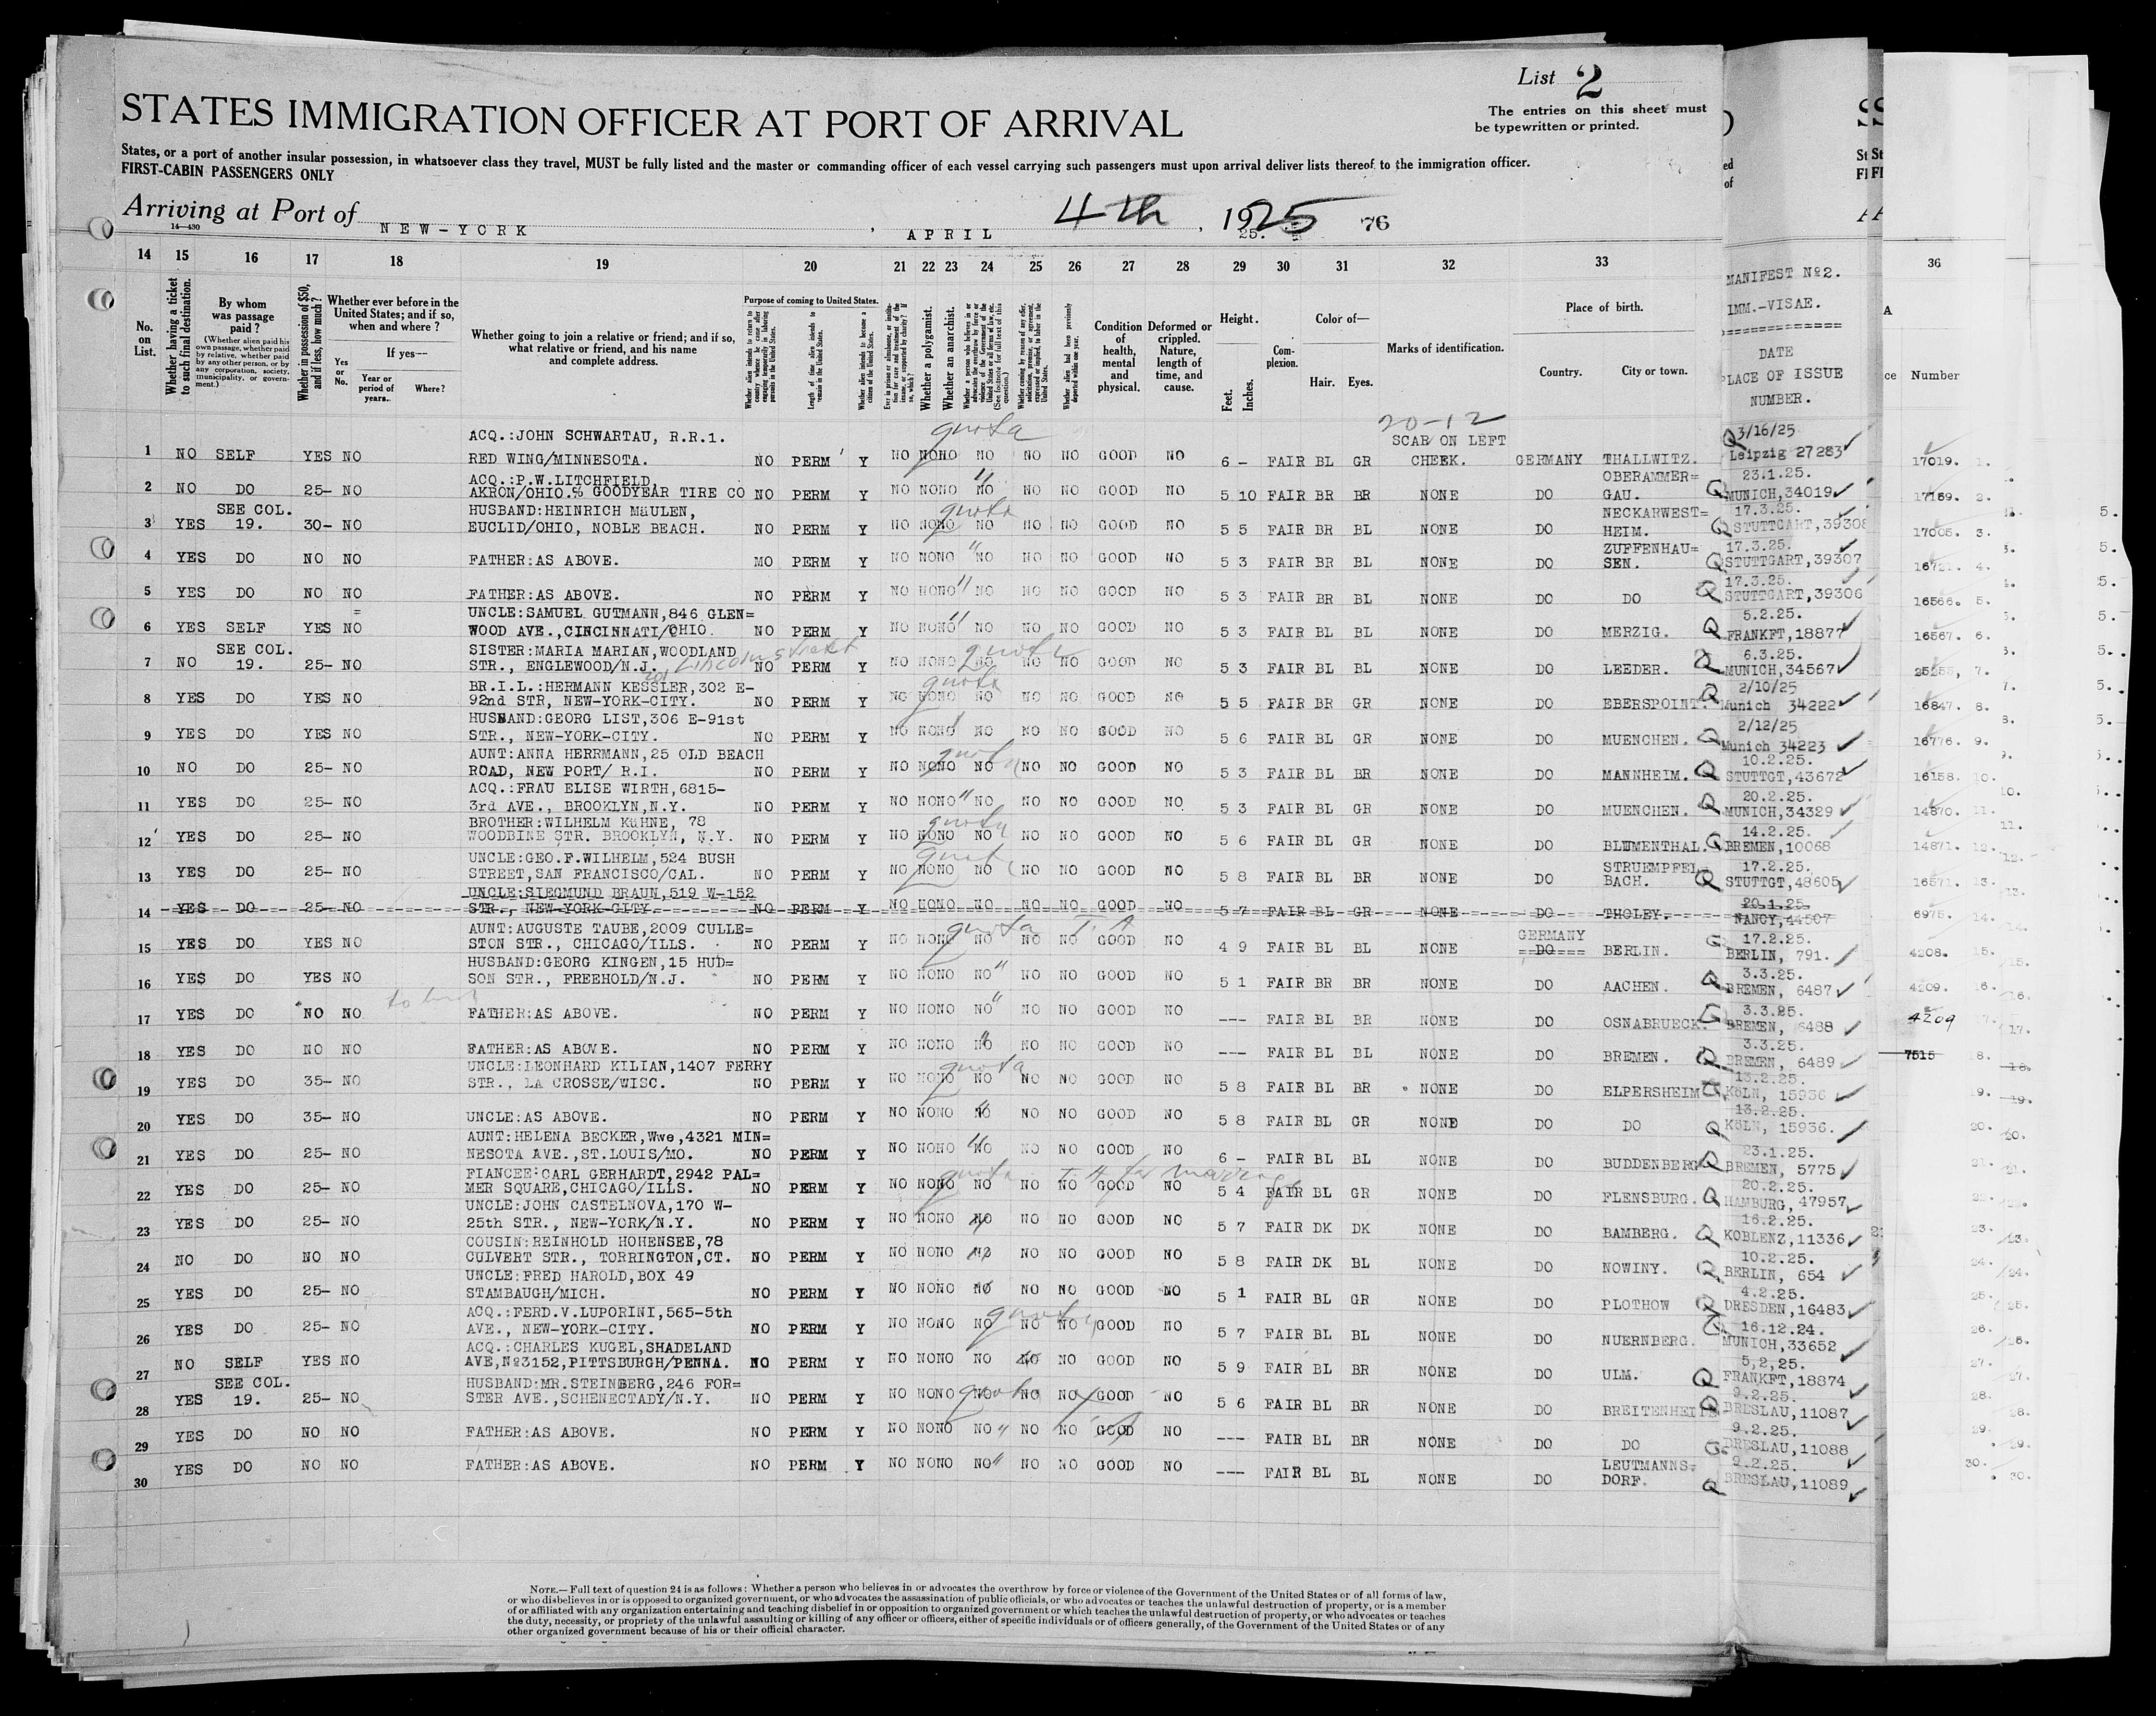 List 2
The entries on this sheet must
be typewritten or printed.
STATES IMMIGRATION OFFICER AT PORT OF ARRIVAL
States, or a port of another insular possession, in whatsoever class they travel, MUST be fully listed and the master or commanding officer of each vessel carrying such passengers must upon arrival deliver lists thereof to the immigration officer.
FIRST-CABIN PASSENGERS ONLY
Arriving at Port of NEW-YORK, APRIL 4th, 1925 76
14—430
14 15 16 17 18 19 20 21 22 23 24 25 26 27 28 29 30 31 32 33 36
No. on List.
Whether having a ticket to such final destination.
By whom was passage paid?
(Whether alien paid his own passage, whether paid by relative, whether paid by any other person, or by any corporation, society, municipality, or government.)
Whether in possession of $50, and if less, how much?
Whether ever before in the United States; and if so, when and where?
Yes or No.
If yes—
Year or period of years.
Where?
Whether going to join a relative or friend; and if so, what relative or friend, and his name and complete address.
Purpose of coming to United States.
Length of time alien intends to remain in the United States.
Whether alien intends to become a citizen of the United States.
Whether a polygamist.
Whether an anarchist.
Condition of health, mental and physical.
Deformed or crippled. Nature, length of time, and cause.
Height.
Feet. Inches.
Complexion.
Color of—
Hair. Eyes.
Marks of identification.
Place of birth.
Country. City or town.
MANIFEST Nº2.
IMM.-VISAE.
DATE
PLACE OF ISSUE
NUMBER.
Number
quota 20-12
ACQ.:JOHN SCHWARTAU, R.R.1. SCAR ON LEFT 3/16/25
1 NO SELF YES NO RED WING/MINNESOTA. NO PERM Y NO NONO NO NO NO GOOD NO 6 - FAIR BL GR CHEEK. GERMANY THALLWITZ. Leipzig 27283 17019. 1.
ACQ.:P.W.LITCHFIELD OBERAMMER= 23.1.25.
2 NO DO 25- NO AKRON/OHIO.% GOODYEAR TIRE CO NO PERM Y NO NONO NO NO NO GOOD NO 5 10 FAIR BR BR NONE DO GAU. MUNICH,34019 17169. 2.
SEE COL. HUSBAND:HEINRICH MäULEN, quota NECKARWEST= 17.3.25.
3 YES 19. 30- NO EUCLID/OHIO, NOBLE BEACH. NO PERM Y NO NONO NO NO NO GOOD NO 5 5 FAIR BR BL NONE DO HEIM. STUTTGART,39308 17005. 3.
ZUFFENHAU= 17.3.25.
4 YES DO NO NO FATHER:AS ABOVE. MO PERM Y NO NONO NO NO NO GOOD NO 5 3 FAIR BR BL NONE DO SEN. STUTTGART,39307 16721. 4.
17.3.25.
5 YES DO NO NO FATHER:AS ABOVE. NO PERM Y NO NONO NO NO NO GOOD NO 5 3 FAIR BR BL NONE DO DO STUTTGART,39306 16566. 5.
UNCLE:SAMUEL GUTMANN,846 GLEN= 5.2.25.
6 YES SELF YES NO WOOD AVE.,CINCINNATI/OHIO. NO PERM Y NO NONO NO NO NO GOOD NO 5 3 FAIR BL BL NONE DO MERZIG. FRANKFT,18877 16567. 6.
SEE COL. SISTER:MARIA MARIAN,WOODLAND Lincoln street quota 6.3.25.
7 NO 19. 25- NO STR., ENGLEWOOD/N.J. NO PERM Y NO NONO NO NO NO GOOD NO 5 3 FAIR BL BL NONE DO LEEDER. MUNICH,34567 7.
BR.I.L.:HERMANN KESSLER,302 E- quota 2/10/25
8 YES DO YES NO 92nd STR, NEW-YORK-CITY. NO PERM Y NO NONO NO NO NO GOOD NO 5 5 FAIR BR GR NONE DO EBERSPOINT. Munich 34222 16847. 8.
HUSBAND:GEORG LIST,306 E-91st 2/12/25
9 YES DO YES NO STR., NEW-YORK-CITY. NO PERM Y NO NONO NO NO NO GOOD NO 5 6 FAIR BL GR NONE DO MUENCHEN. Munich 34223 16776. 9.
AUNT:ANNA HERRMANN,25 OLD BEACH quota 10.2.25.
10 NO DO 25- NO ROAD, NEW PORT/ R.I. NO PERM Y NO NONO NO NO NO GOOD NO 5 3 FAIR BL BR NONE DO MANNHEIM. STUTTGT,43672 16158. 10.
ACQ.:FRAU ELISE WIRTH,6815- 20.2.25.
11 YES DO 25- NO 3rd AVE., BROOKLYN,N.Y. NO PERM Y NO NONO NO NO NO GOOD NO 5 3 FAIR BL GR NONE DO MUENCHEN. MUNICH,34329 14870. 11.
BROTHER:WILHELM KüHNE, 78 quota 14.2.25.
12 YES DO 25- NO WOODBINE STR. BROOKLYN, N.Y. NO PERM Y NO NONO NO NO NO GOOD NO 5 6 FAIR BL GR NONE DO BLUMENTHAL. BREMEN,10068 14871. 12.
UNCLE:GEO.F.WILHELM,524 BUSH STRUEMPFEL= 17.2.25.
13 YES DO 25- NO STREET,SAN FRANCISCO/CAL. NO PERM Y NO NONO NO NO NO GOOD NO 5 8 FAIR BL BR NONE DO BACH. STUTTGT,48605 16571. 13.
UNCLE:SIEGMUND BRAUN,519 W-152 20.1.25.
14 YES DO 25- NO STR., NEW-YORK-CITY. NO PERM Y NO NONO NO NO NO GOOD NO 5 7 FAIR BL GR NONE DO THOLEY. NANCY,44507 6975. 14.
AUNT:AUGUSTE TAUBE,2009 CULLE= quota GERMANY 17.2.25.
15 YES DO YES NO STON STR., CHICAGO/ILLS. NO PERM Y NO NONO NO NO NO GOOD NO 4 9 FAIR BL BL NONE DO BERLIN. BERLIN, 791. 4208. 15.
HUSBAND:GEORG KINGEN,15 HUD= 3.3.25.
16 YES DO YES NO SON STR., FREEHOLD/N.J. NO PERM Y NO NONO NO NO NO GOOD NO 5 1 FAIR BR BR NONE DO AACHEN. BREMEN, 6487 4209. 16.
3.3.25.
17 YES DO NO NO FATHER:AS ABOVE. NO PERM Y NO NONO NO NO NO GOOD NO --- FAIR BL BR NONE DO OSNABRUECK. BREMEN, 6488 4209 17.
3.3.25.
18 YES DO NO NO FATHER:AS ABOVE. NO PERM Y NO NONO NO NO NO GOOD NO --- FAIR BL BL NONE DO BREMEN. BREMEN, 6489 7515 18.
UNCLE:LEONHARD KILIAN,1407 FERRY quota 13.2.25.
19 YES DO 35- NO STR., LA CROSSE/WISC. NO PERM Y NO NONO NO NO NO GOOD NO 5 8 FAIR BL BR NONE DO ELPERSHEIM KöLN, 15936 19.
13.2.25.
20 YES DO 35- NO UNCLE:AS ABOVE. NO PERM Y NO NONO NO NO NO GOOD NO 5 8 FAIR BL GR NONE DO DO KöLN, 15936. 20.
AUNT:HELENA BECKER,Wwe,4321 MIN= 23.1.25.
21 YES DO 25- NO NESOTA AVE.,ST.LOUIS/MO. NO PERM Y NO NONO NO NO NO GOOD NO 6 - FAIR BL BL NONE DO BUDDENBERG BREMEN, 5775 21.
FIANCEE:CARL GERHARDT,2942 PAL= quota for marriage 20.2.25.
22 YES DO 25- NO MER SQUARE,CHICAGO/ILLS. NO PERM Y NO NONO NO NO NO GOOD NO 5 4 FAIR BL GR NONE DO FLENSBURG. HAMBURG, 47957 22.
UNCLE:JOHN CASTELNOVA,170 W- 16.2.25.
23 YES DO 25- NO 25th STR., NEW-YORK/N.Y. NO PERM Y NO NONO NO NO NO GOOD NO 5 7 FAIR DK DK NONE DO BAMBERG. KOBLENZ,11336 23.
COUSIN:REINHOLD HOHENSEE,78 10.2.25.
24 NO DO NO NO CULVERT STR., TORRINGTON,CT. NO PERM Y NO NONO NO NO NO GOOD NO 5 8 FAIR DK BL NONE DO NOWINY. BERLIN, 654 24.
UNCLE:FRED HAROLD,BOX 49 4.2.25.
25 YES DO 25- NO STAMBAUGH/MICH. NO PERM Y NO NONO NO NO NO GOOD NO 5 1 FAIR BL GR NONE DO PLOTHOW DRESDEN,16483 25.
ACQ.:FERD.V.LUPORINI,565-5th quota 16.12.24.
26 YES DO 25- NO AVE., NEW-YORK-CITY. NO PERM Y NO NONO NO NO NO GOOD NO 5 7 FAIR BL BL NONE DO NUERNBERG. MUNICH,33652 26.
ACQ.:CHARLES KUGEL,SHADELAND 5,2,25.
27 NO SELF YES NO AVE,Nº3152,PITTSBURGH/PENNA. NO PERM Y NO NONO NO NO NO GOOD NO 5 9 FAIR BL BR NONE DO ULM. FRANKFT,18874 27.
SEE COL. HUSBAND:MR.STEINBERG,246 FOR= quota 9.2.25.
28 YES 19. 25- NO STER AVE.,SCHENECTADY/N.Y. NO PERM Y NO NONO NO NO NO GOOD NO 5 6 FAIR BL BR NONE DO BREITENHEI BRESLAU,11087 28.
9.2.25.
29 YES DO NO NO FATHER:AS ABOVE. NO PERM Y NO NONO NO NO NO GOOD NO --- FAIR BL BR NONE DO DO BRESLAU,11088 29.
LEUTMANNS= 9.2.25.
30 YES DO NO NO FATHER:AS ABOVE. NO PERM Y NO NONO NO NO NO GOOD NO --- FAIR BL BL NONE DO DORF. BRESLAU,11089 30.
NOTE.—Full text of question 24 is as follows: Whether a person who believes in or advocates the overthrow by force or violence of the Government of the United States or of all forms of law,
or who disbelieves in or is opposed to organized government, or who advocates the assassination of public officials, or who advocates or teaches the unlawful destruction of property, or is a member
of or affiliated with any organization entertaining and teaching disbelief in or opposition to organized government or which teaches the unlawful destruction of property, or who advocates or teaches
the duty, necessity, or propriety of the unlawful assaulting or killing of any officer or officers, either of specific individuals or of officers generally, of the Government of the United States or of any
other organized government because of his or their official character.